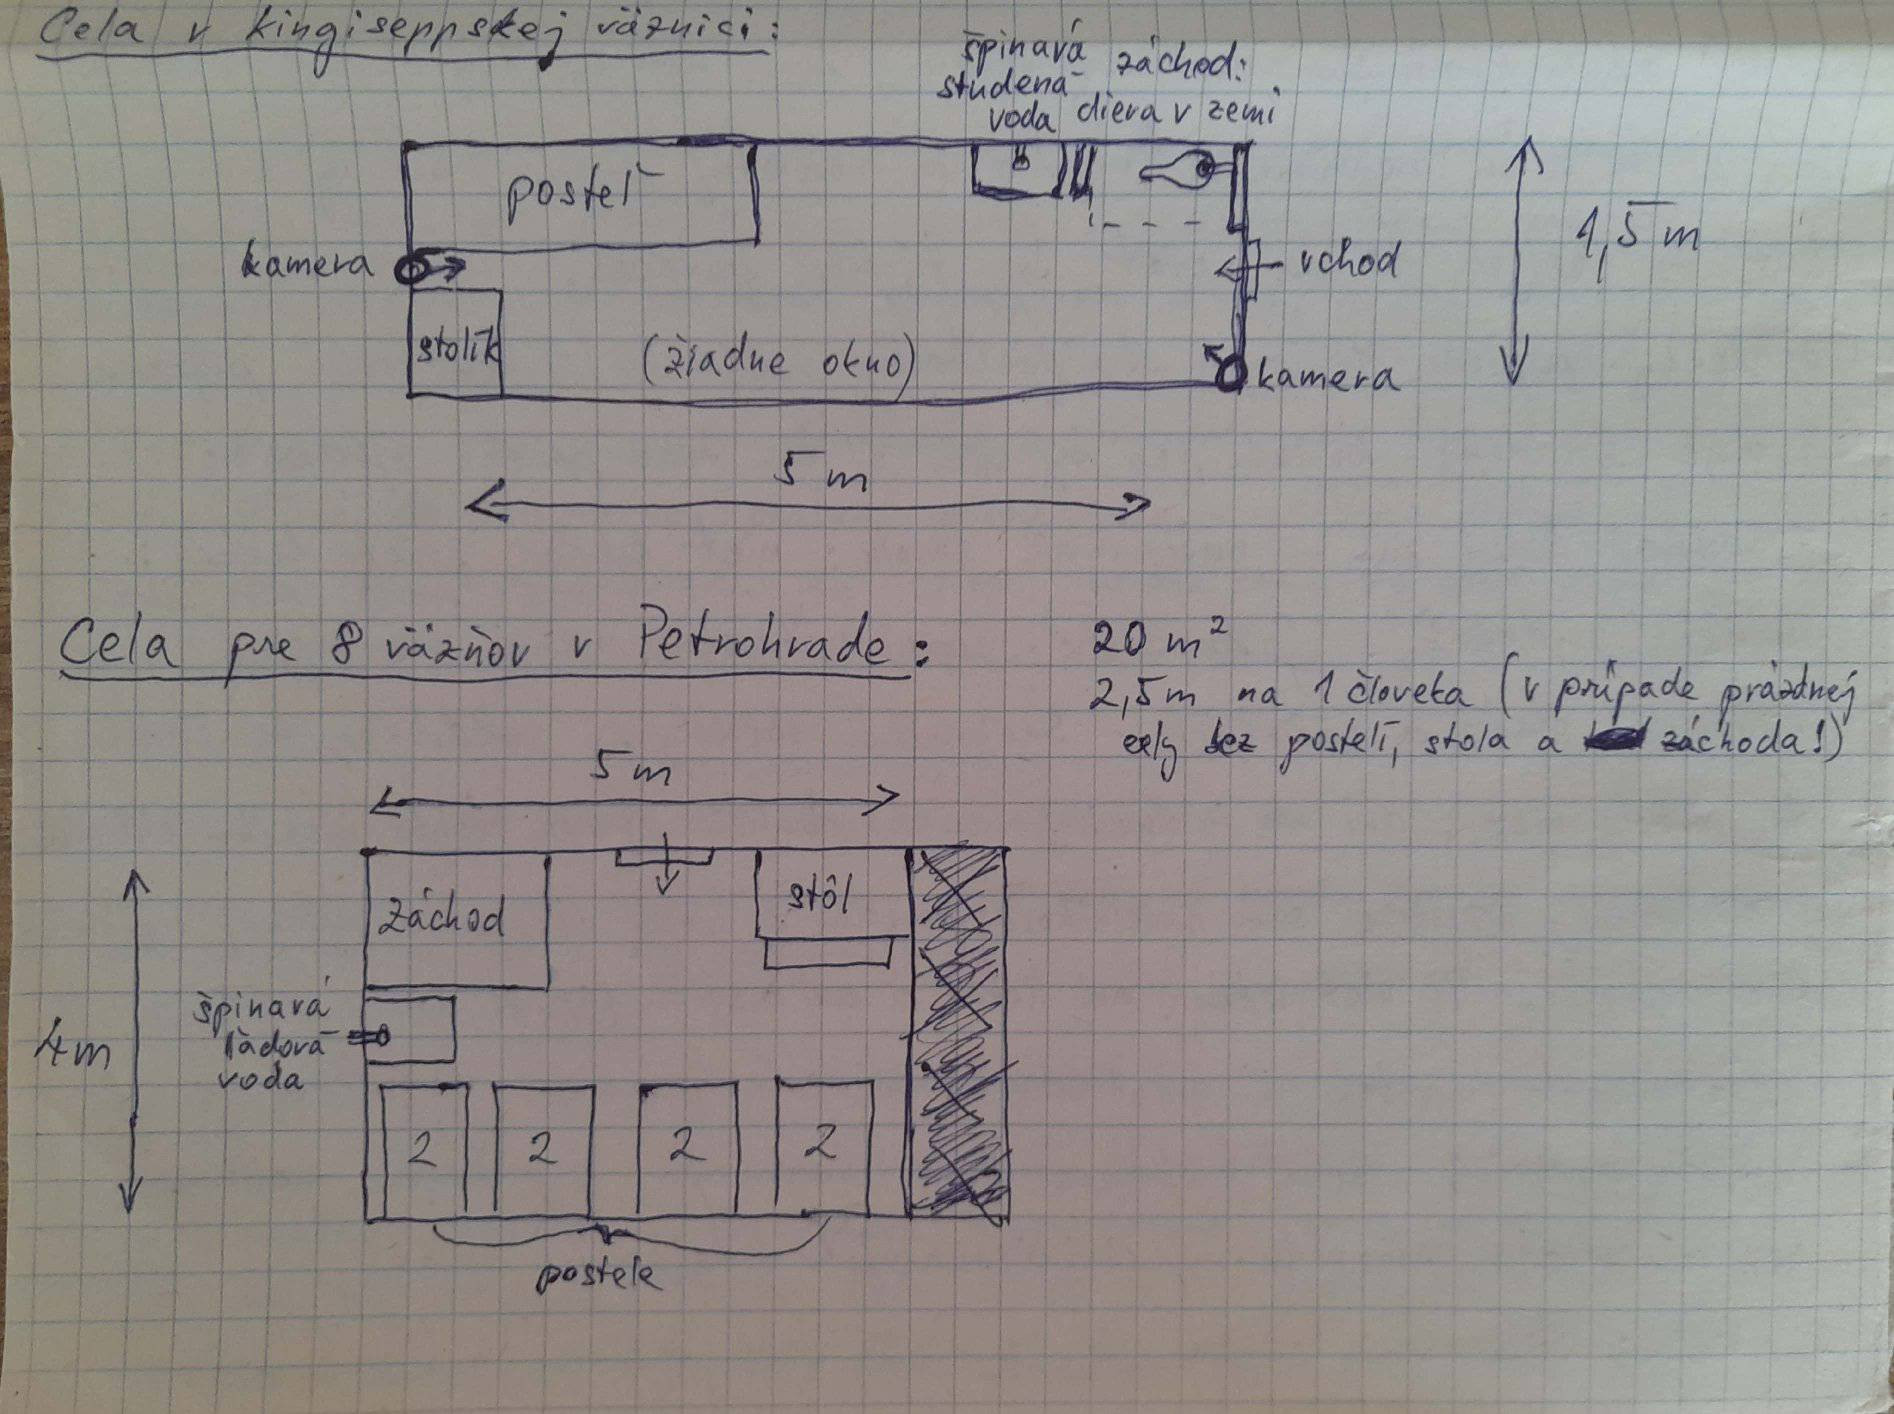 Cela v kingiseppskej väznici:
špinavá
studená
voda
záchod:
diera v zemi
posteľ
kamera
vchod
1,5 m
stolík
(žiadne okno)
kamera
5 m
Cela pre 8 väzňov v Petrohrade:
20 m²
2,5m na 1 človeka (v prípade prázdnej
cely bez postelí, stola a záchoda!)
5 m
záchod
stôl
špinavá
ľadová
voda
4m
2 2 2 2
postele